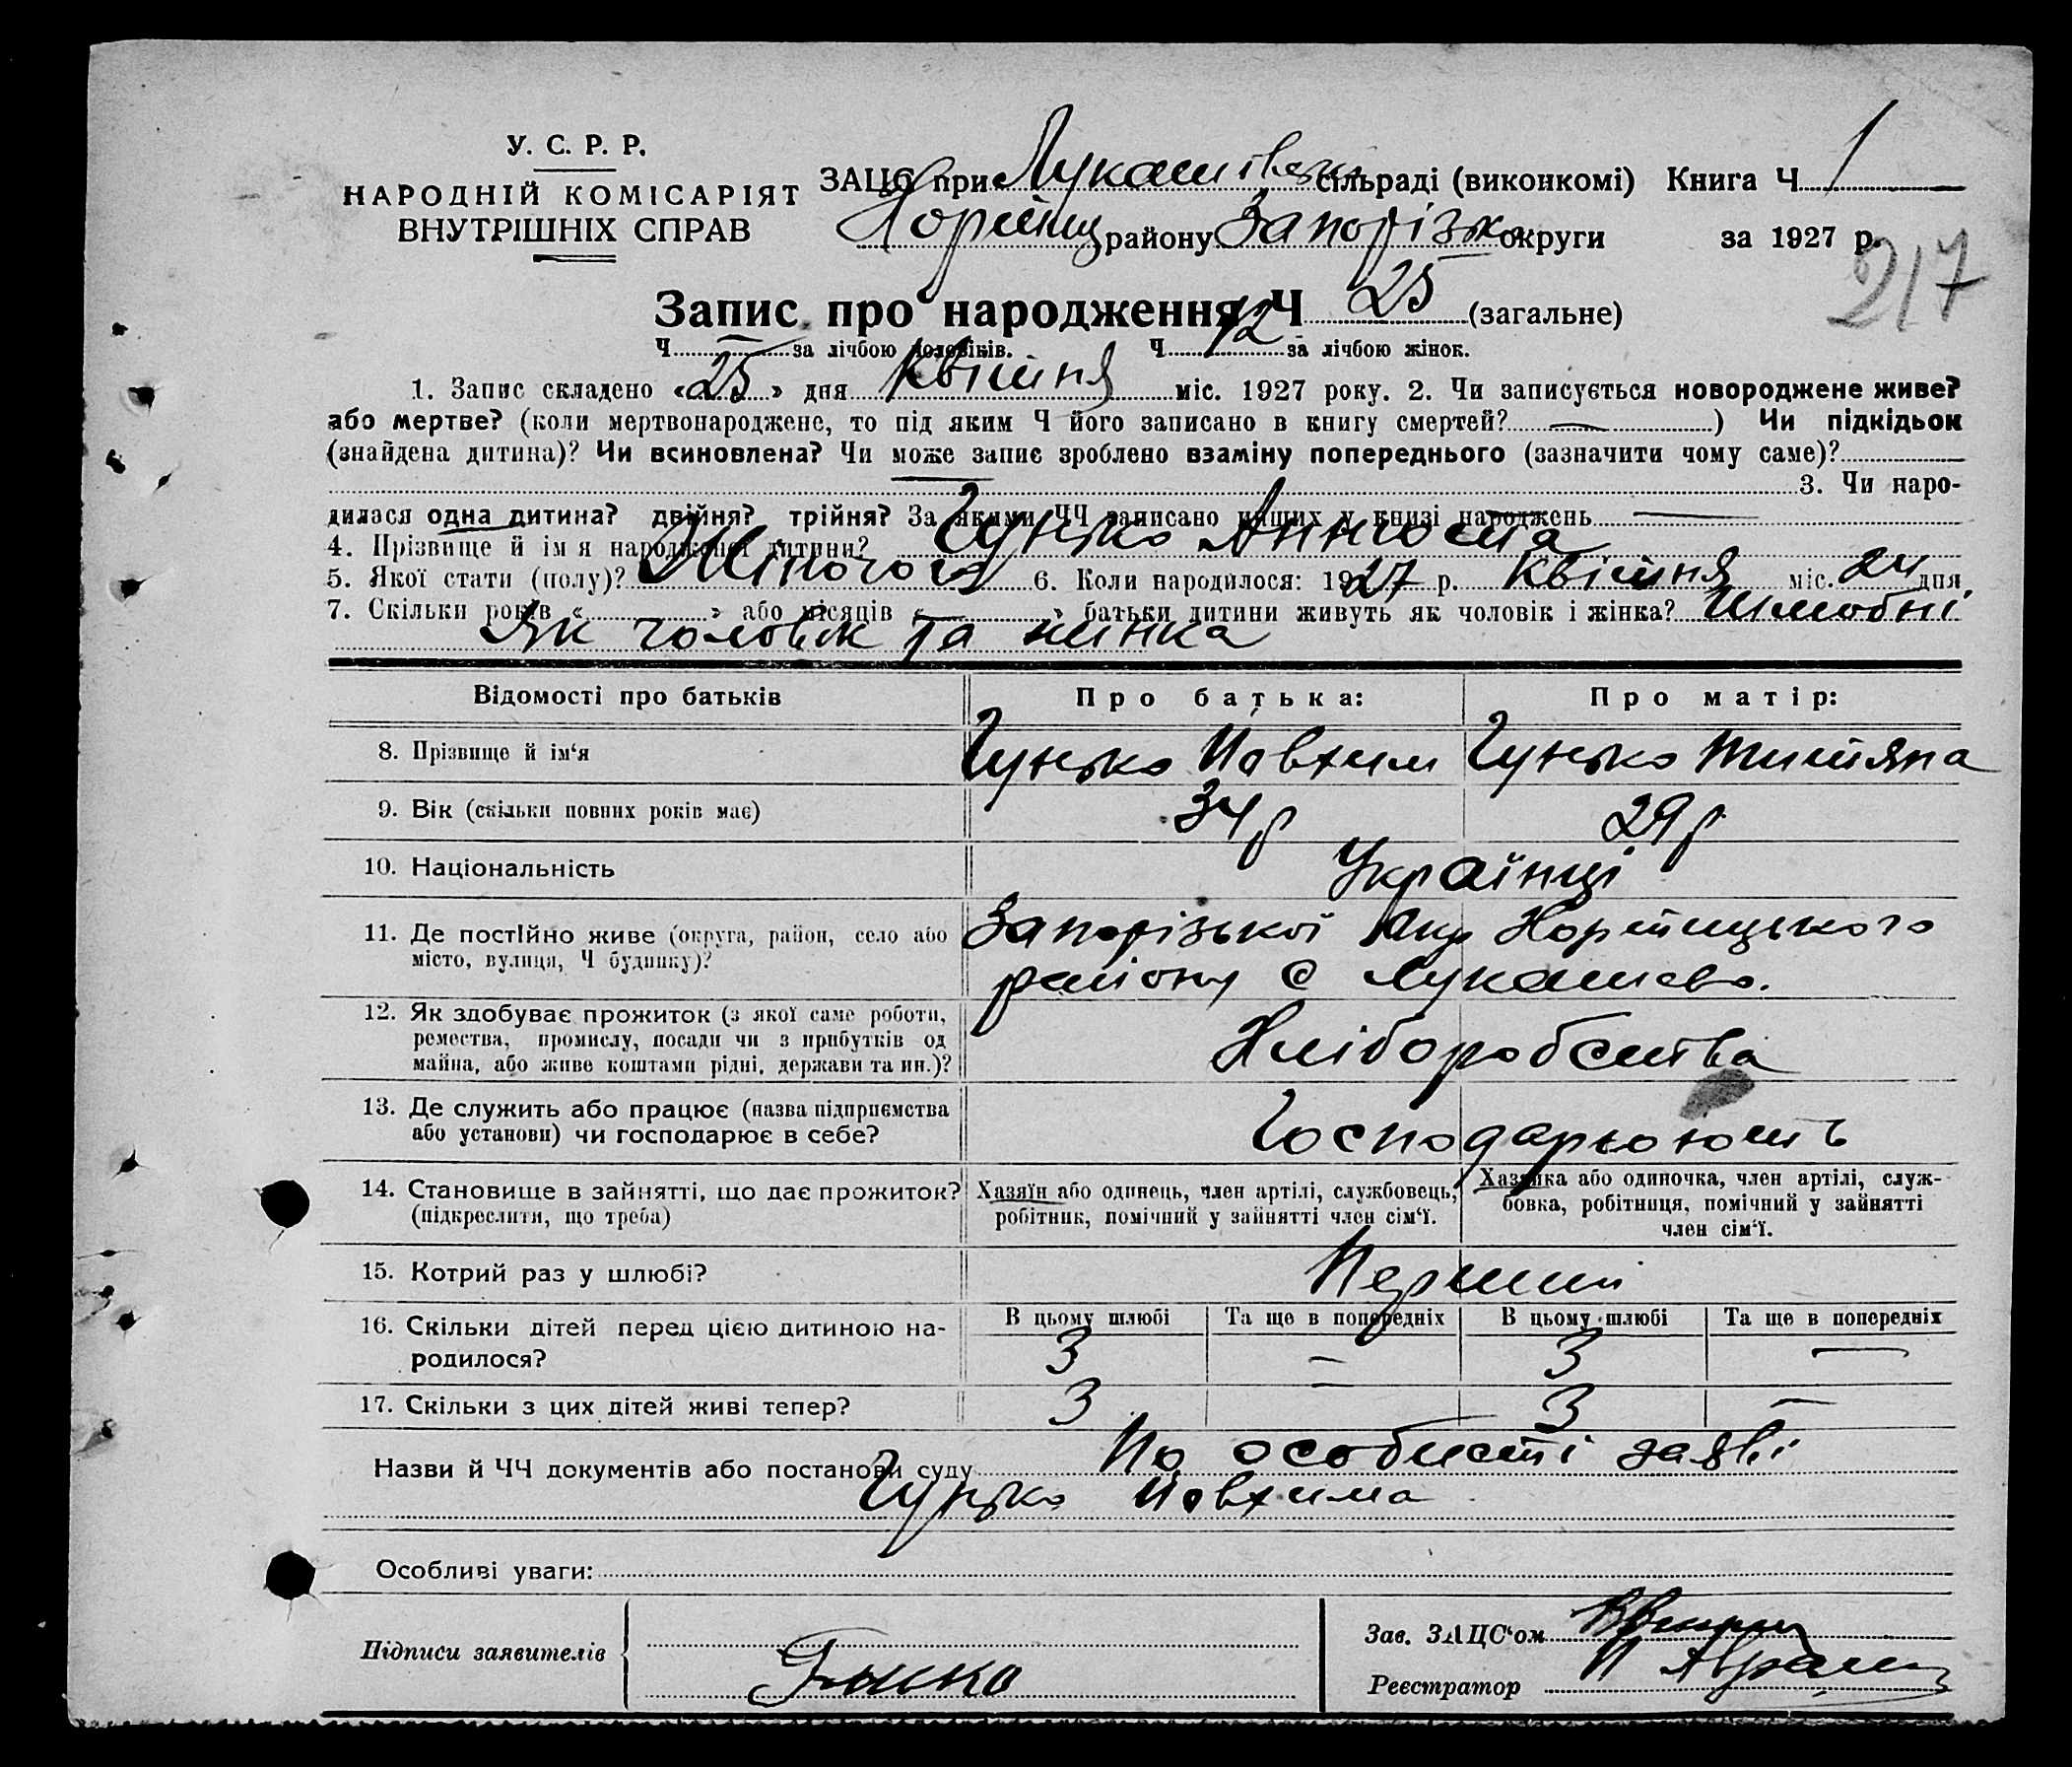 У. С. Р. Р.
НАРОДНІЙ КОМІСАРІЯТ
ВНУТРІШНІХ СПРАВ
ЗАЦС при Лукашівській сільраді (виконкомі) Книга Ч. 1
Хортицьк району Запорізьк округи за 1927 р.
217
Запис про народження Ч 25 (загальне)
Ч. — за лічбою чоловіків. Ч. 12 за лічбою жінок.
1. Запис складено «25» дня Квітня міс. 1927 року. 2. Чи записується новороджене живе?
або мертве? (коли мертвонароджене, то під яким Ч його записано в книгу смертей? — ) Чи підкідьок
(знайдена дитина)? Чи всиновлена? Чи може запис зроблено взаміну попереднього (зазначити чому саме)?
3. Чи наро-
дилася одна дитина? двійня? трійня? За якими ЧЧ записано инших у книзі народжень —
4. Прізвище й ім'я народженої дитини? Гунько Аннюста
5. Якої стати (полу)? Жіночого 6. Коли народилося: 1927 р. Квітня міс. 24 дня
7. Скільки років « » або місяців « — » батьки дитини живуть як чоловік і жінка? Шлюбні
Як чоловік та жинка
Відомості про батьків Про батька: Про матір:
8. Прізвище й ім'я Гунько Йовхим Гунько Титяна
9. Вік (скільки повних років має) 34 р 29 р
10. Національність Українці
11. Де постійно живе (округа, район, село або Запорізької Окр Хортицького
місто, вулиця, Ч будинку)? району С Лукашево.
12. Як здобуває прожиток (з якої саме роботи,
ремества, промислу, посади чи з прибутків од Хліборобства
майна, або живе коштами рідні, держави та ин.)?
13. Де служить або працює (назва підприємства
або установи) чи господарює в себе? Господарьюють
14. Становище в зайнятті, що дає прожиток? Хазяїн або одинець, член артілі, службовець, Хазяйка або одиночка, член артілі, служ-
(підкреслити, що треба) робітник, помічний у зайнятті член сім'ї. бовка, робітниця, помічний у зайнятті
член сім'ї.
15. Котрий раз у шлюбі? Перший
16. Скільки дітей перед цією дитиною на- В цьому шлюбі Та ще в попередніх В цьому шлюбі Та ще в попередніх
родилося? 3 — 3 —
17. Скільки з цих дітей живі тепер? 3 — 3 —
Назви й ЧЧ документів або постанови суду По особисті заяві
Гунько Йовхима
Особливі уваги:
Підписи заявителів Гунько
Зав. ЗАЦС'ом
Реєстратор